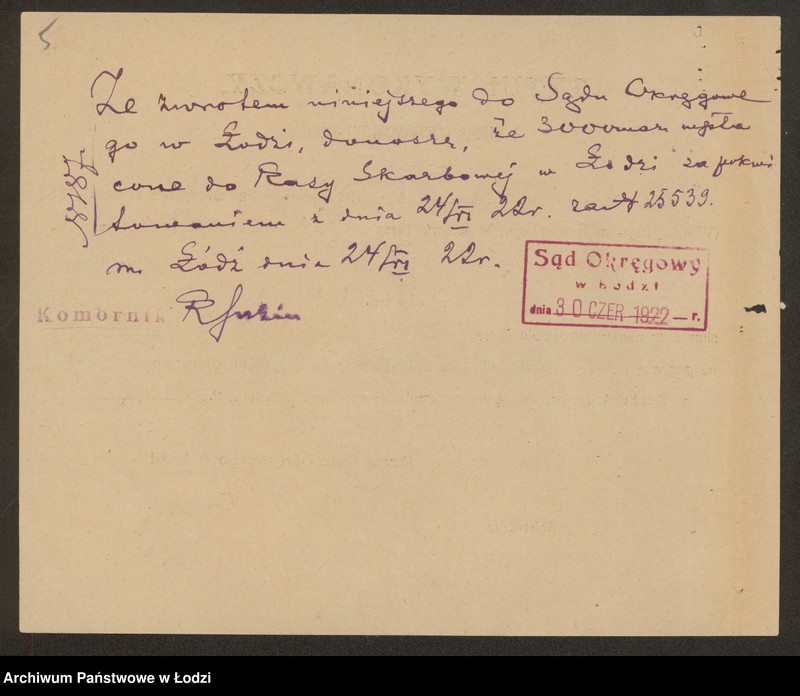 5
Ze zwrotem niniejszego do Sądu Okręgowe
go w Łodzi, donoszę, że 3000 mar. wpła
cone do Kasy Skarbowej w Łodzi za pokwi
towaniem z dnia 24/VI 22r. za № 25539.
m. Łódź dnia 24/VI 22r.
Komornik
Sąd Okręgowy
w Łodzi
dnia 30 CZER 1922 — r.
Archiwum Państwowe w Łodzi